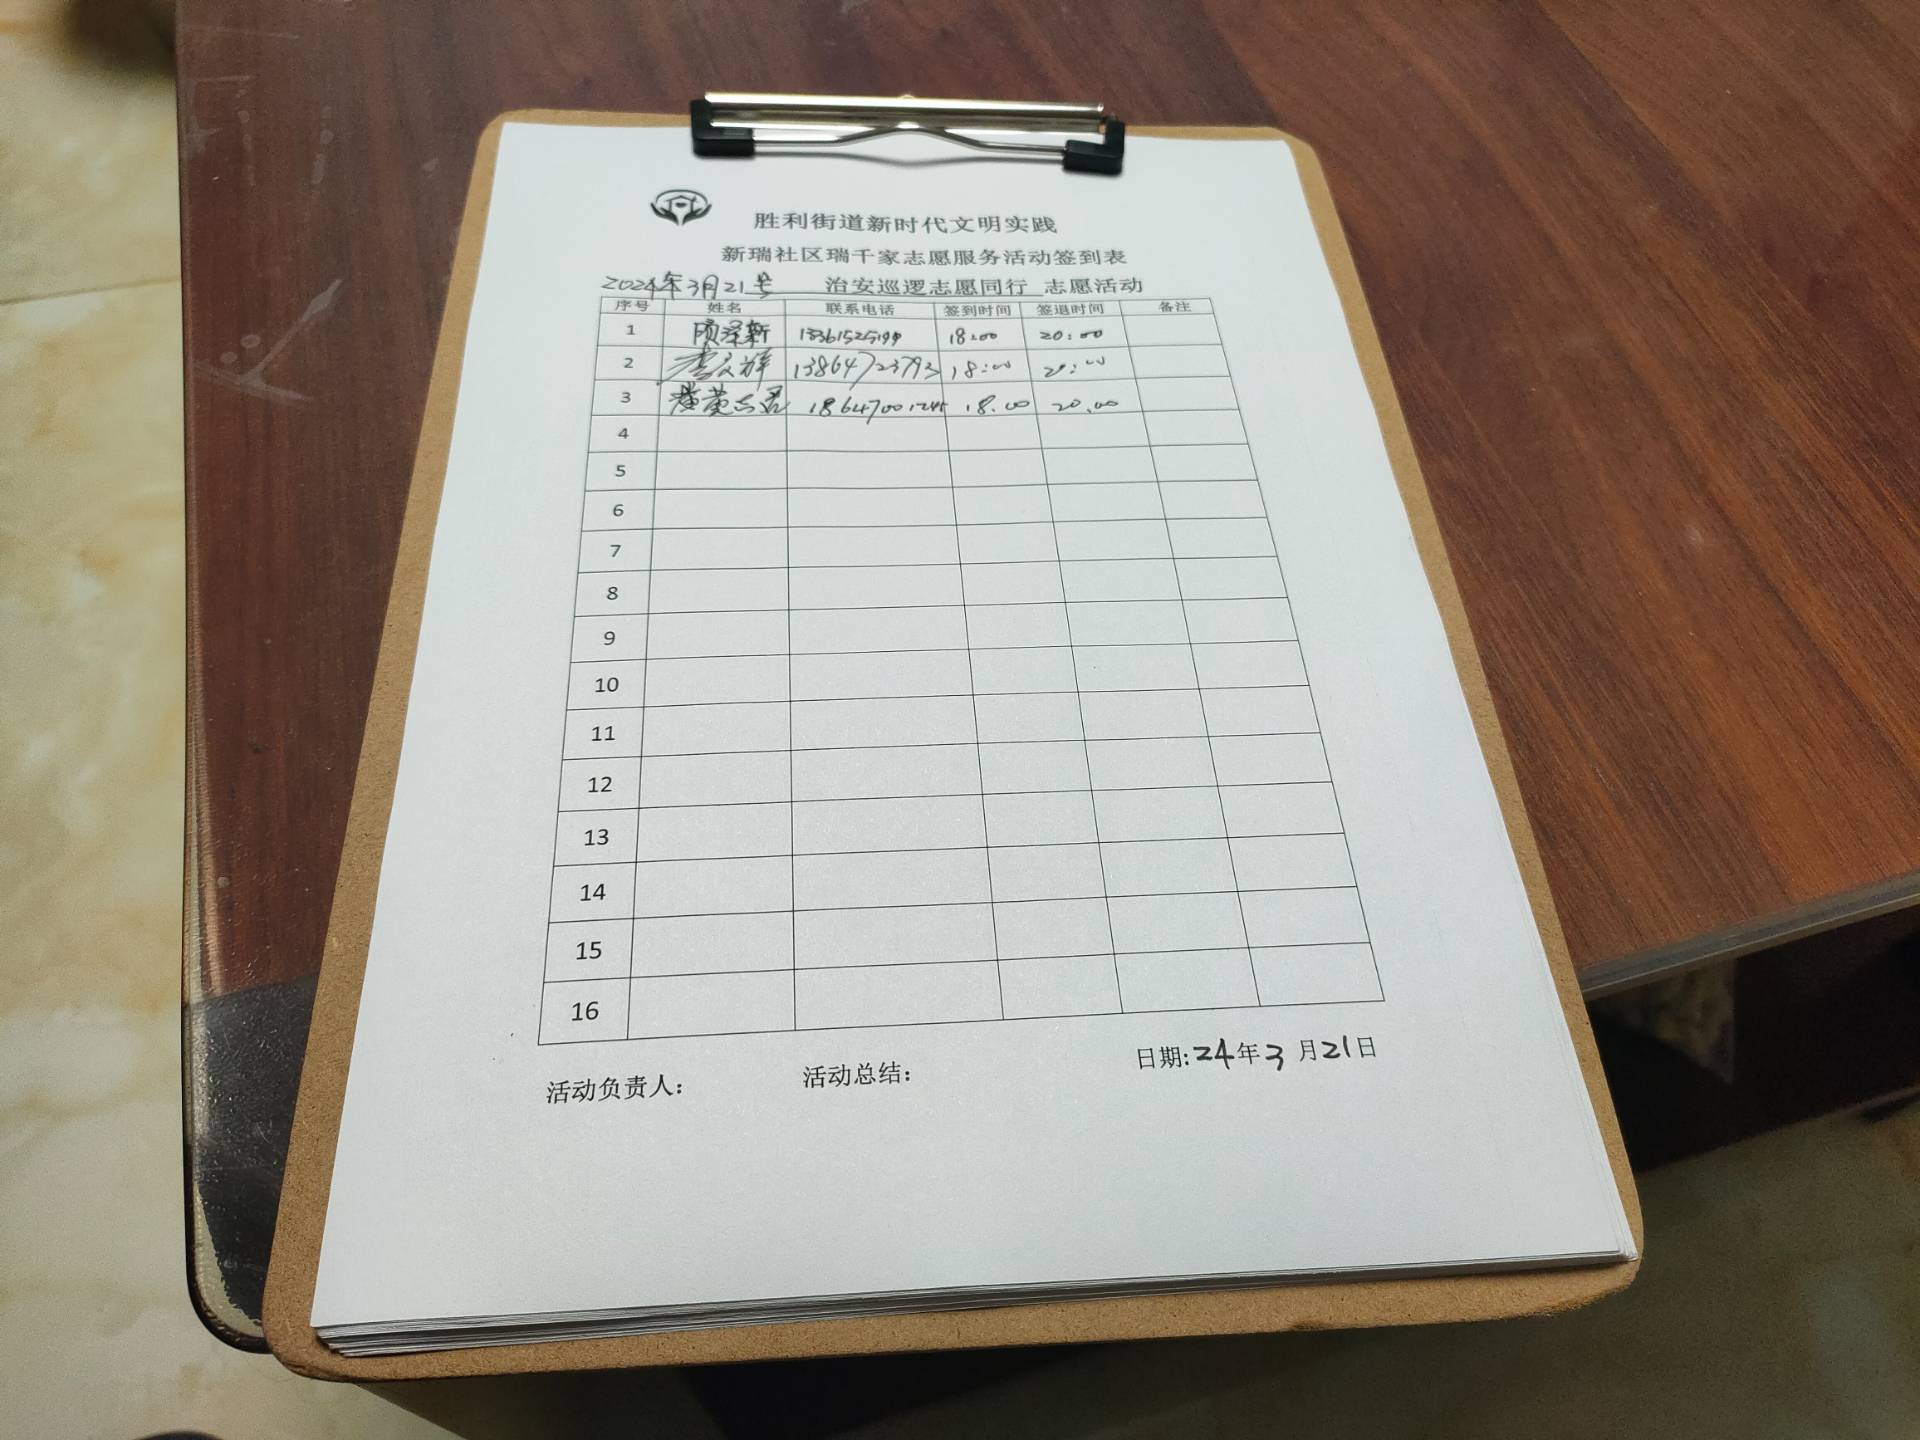 胜利街道新时代文明实践
新瑞社区瑞千家志愿服务活动签到表
2024年3月21号 治安巡逻志愿同行 志愿活动
序号 姓名 联系电话 签到时间 签退时间 备注
1 18:00 20:00
2 13864723793 18:00 20:00
3 18.00 20.00
4
5
6
7
8
9
10
11
12
13
14
15
16
活动负责人: 活动总结: 日期:24年3月21日